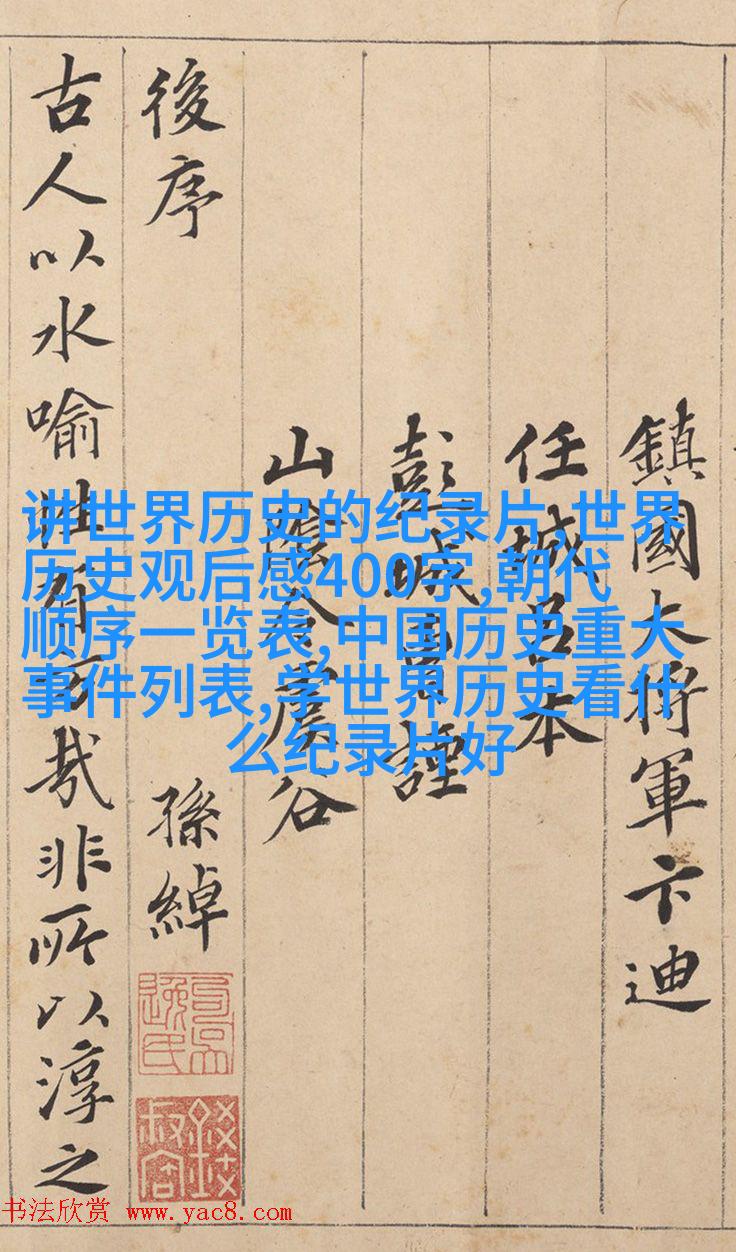 鎮國大將軍卞迪
任城呂本
彭城曹諲
山陰令虞谷
後序
孫綽
古人以水喻性有旨哉非所以淳之
讲世界历史的纪录片,世界
历史观后感400字,朝代
顺序一览表,中国历史重大
事件列表,学世界历史看什
么纪录片好
书法欣赏 www.yac8.com